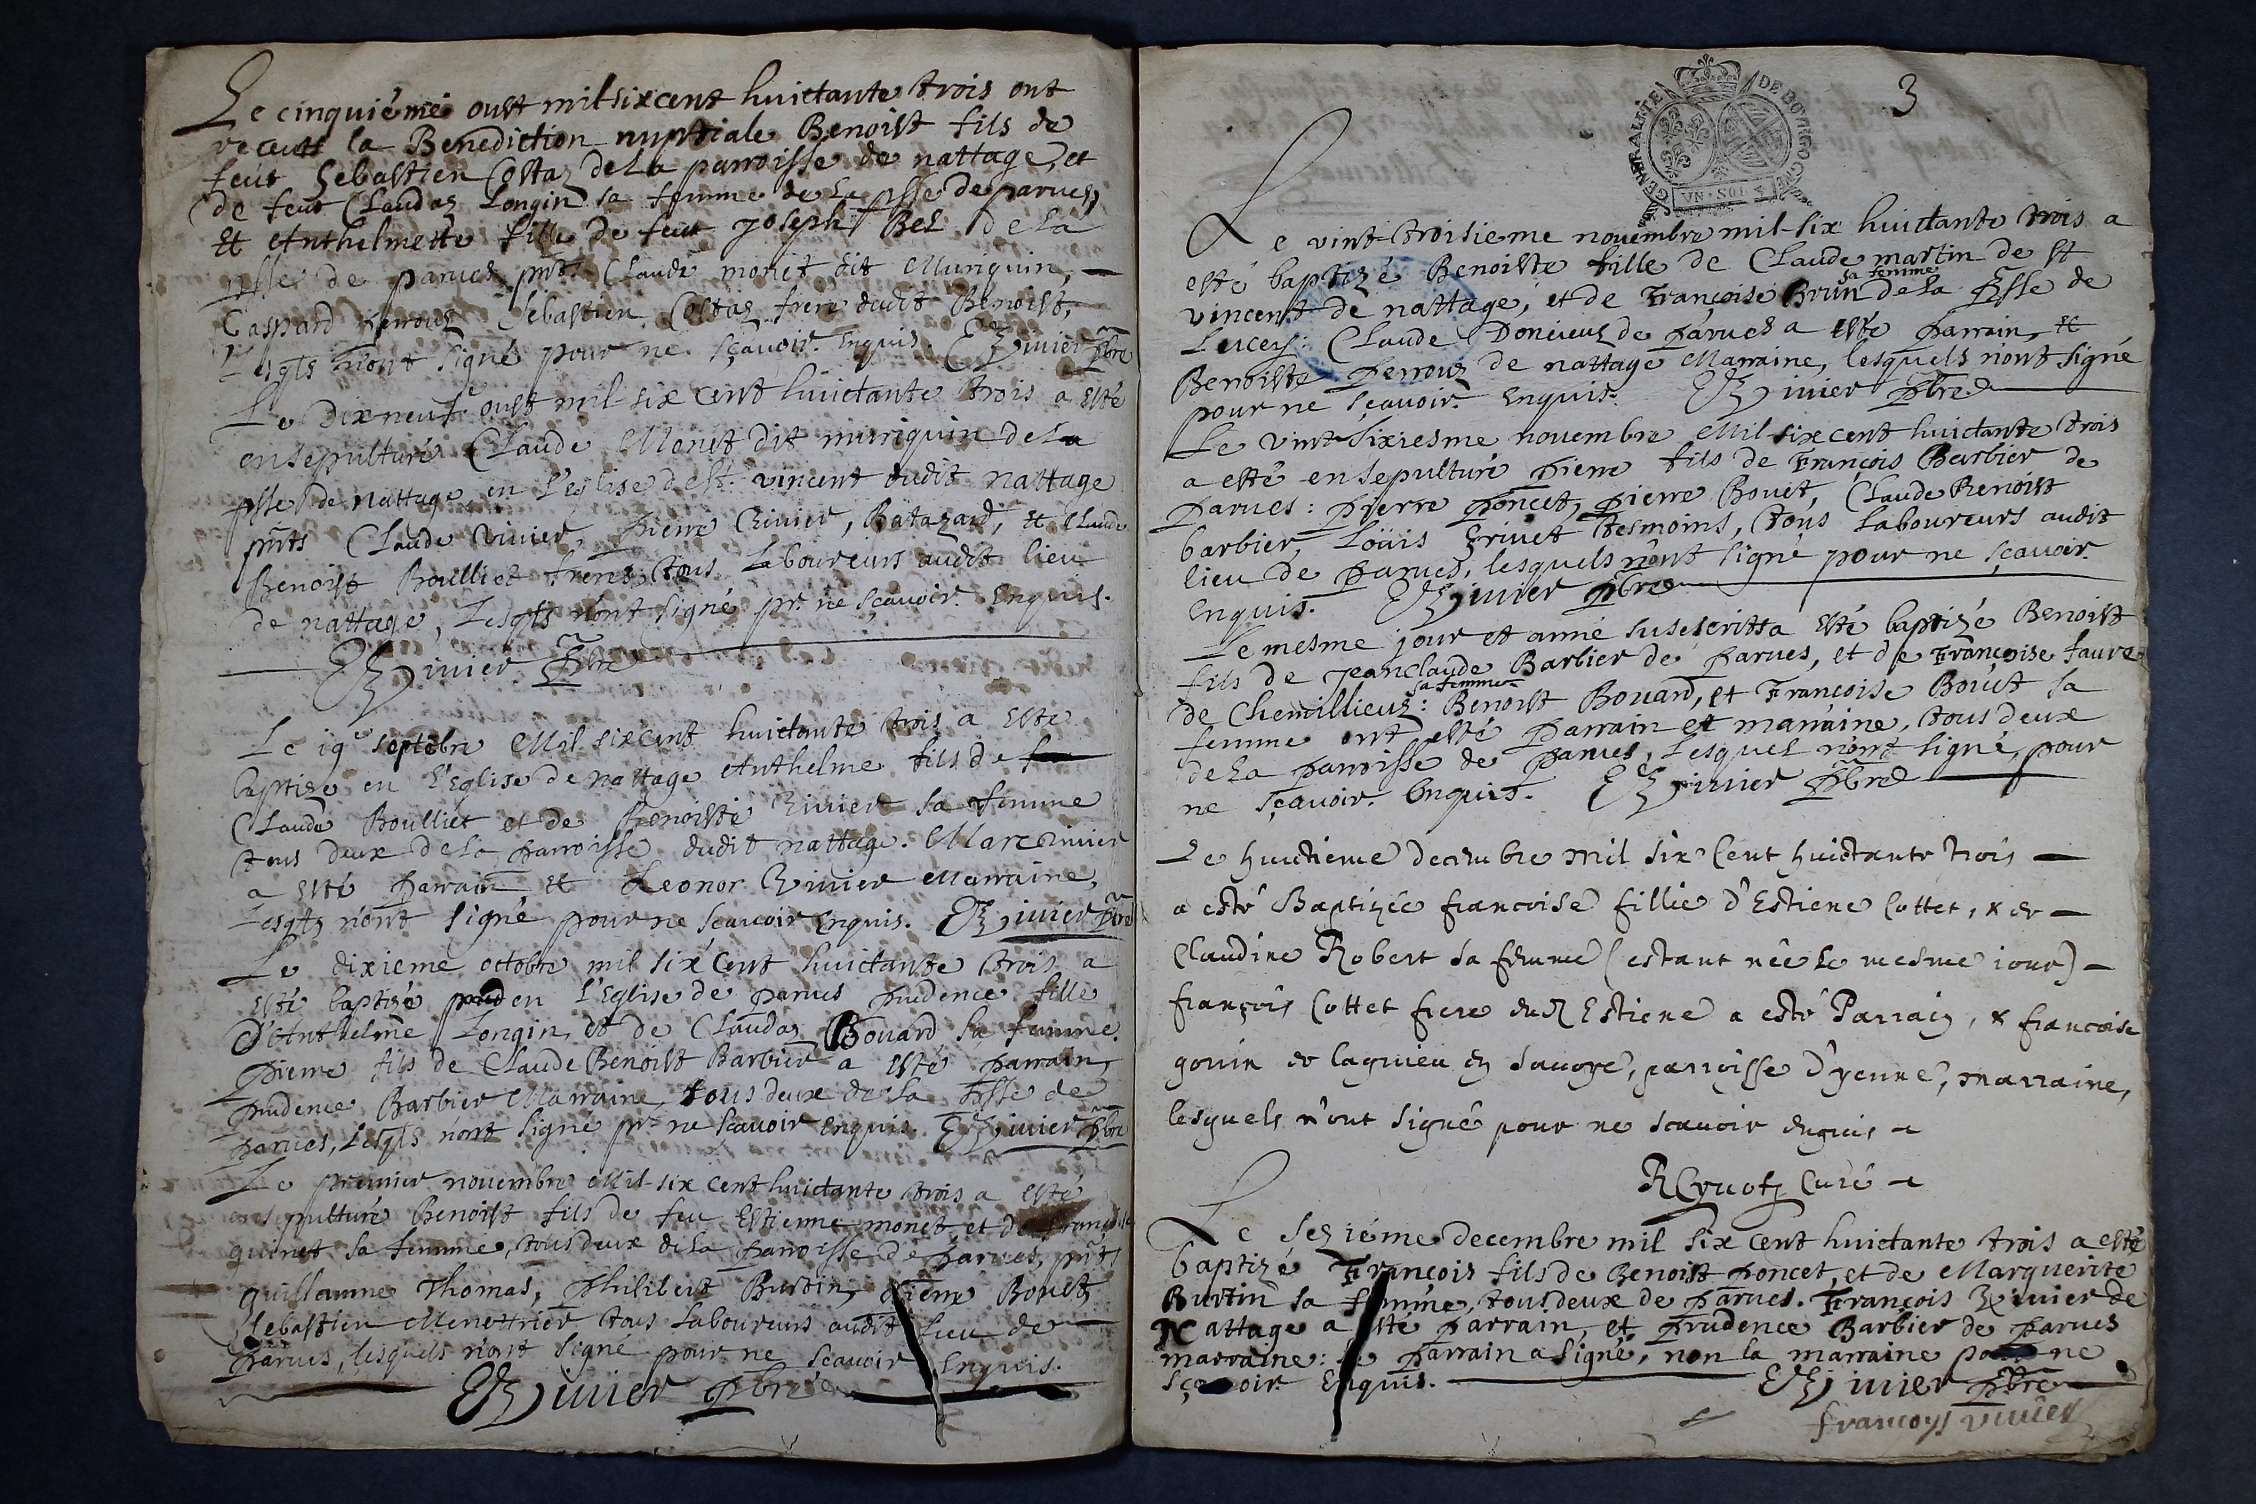 Le cinquiéme oust mil sixcent huictante trois ont
receutt la Benediction nuptiale Benoist fils de
feut Sebastien Costaz de la parroisse de nattage, et
de feut Claudaz Longin sa femme de la psse de parues,
Et Anthelmette fille de feut Joseph Bel de la
psse de parues pnts Claude monet dit Muriquin,
Gaspard perrouz Sebastien Costaz frere dudit Benoist,
Lesqls n'ont signé pour ne sçauoir Enquis. Viuier pbre
Le Dix neuf oust mil six cent huictante trois a esté
ensepulturé Claude Monet dit muriquin de la
psse de Nattage en l'eglise de St. vincent dudit nattage
pnts Claude viuier, pierre Viuier, Batazard, et Claude
Benoist Boulliet freres tous Laboureurs audit lieu
de nattage, Lesqls n'ont signé pr. ne sçauoir Enquis.
Viuier pbre
Le 19e septebre Mil sixcent huictante trois a este
baptize en l'Eglise de Nattage Anthelme fils de
Claude Boulliet et de Benoiste Viuier sa femme
tous deux de la parroisse dudit nattage. Marc Viuier
a esté parrain et Leonor Viuier Marraine,
Lesqls n'ont signé pour ne scauoir Enquis. Viuier pbre
Le dixieme octobre mil six Cent huictante trois a
esté baptizé en l'Eglise de parues prudence fille
d'Anthelme Longin et de Claudaz Bouard sa femme.
pierre fils de Claude Benoist Barbier a esté parrain,
prudence Barbier Marraine, tous deux de la psse de
parues, Lesqls n'ont signé pr ne scauoir Enquis. Viuier pbre
Le premier nouembre Mil six cent huictante trois a esté
ensepulturé Benoist fils de feu Estienne monet et de Françoise
quinet sa femme, tous deux de la parroisse de parues, pnts
Guillaume Thomas, Philibert Burtin, Pierre Bouet,
Sebastien Menettrier tous Laboureurs audit Lieu de
parues, lesquels n'ont signé pour ne scauoir Enquis.
Viuier pbre
3
GENERALITÉ DE BOVRGOGNE
VN · SOL
Le vint-troisieme nouembre mil-six huictante trois a
esté baptizé Benoiste fille de Claude martin de St
vincent de nattage, et de Françoise Brun sa femme de la psse de
Lucey: Claude Doncieuz de paruez a esté parrain, et
Benoiste perrouz de nattage Marraine, lesquels n'ont signé
pour ne sçauoir Enquis. Viuier pbre
Le vint-sixiesme nouembre Mil sixcent huictante trois
a esté ensepulturé pierre fils de François Barbier de
parues: pierre poncet, pierre Bouet, Claude Benoist
barbier, Loüis Griuet tesmoins, tous Laboureurs audit
lieu de parues, lesquels n'ont signé pour ne sçauoir
Enquis. Viuier pbre
Le mesme jour et anné susescritt a esté baptizé Benoist
fils de Jean Claude Barbier de parues, et de Françoise faure
de Chemillieuz sa femme: Benoist Bouard, et Françoise Bouet sa
femme ont esté parrain et marraine, tous deux
de la parroisse de parues, Lesquel n'ont signé, pour
ne sçauoir Enquis. Viuier pbre
Le huictieme decembre mil six Cent huictante trois
a esté Baptizée francoise fillie d'Estiene Cottet, & de
Claudine Robert sa femme (estant née le mesme iour)
françois Cottet frere dud Estiene a esté Parrain, & francoise
gouin de lagnieu en Sauoye, parroisse d'yenne, marraine,
lesquels n'ont signé pour ne scauoir enquis
Curé
Le seziéme decembre mil six cent huictante trois a esté
baptizé François fils de Benoist poncet, et de Marguerite
Burtin sa femme, tous deux de parues. François Viuier de
Nattage a esté parrain, et prudence Barbier de parues
marraine: le parrain a signé, non la marraine pour ne
sçauoir Enquis. Viuier pbre
françoys viuier